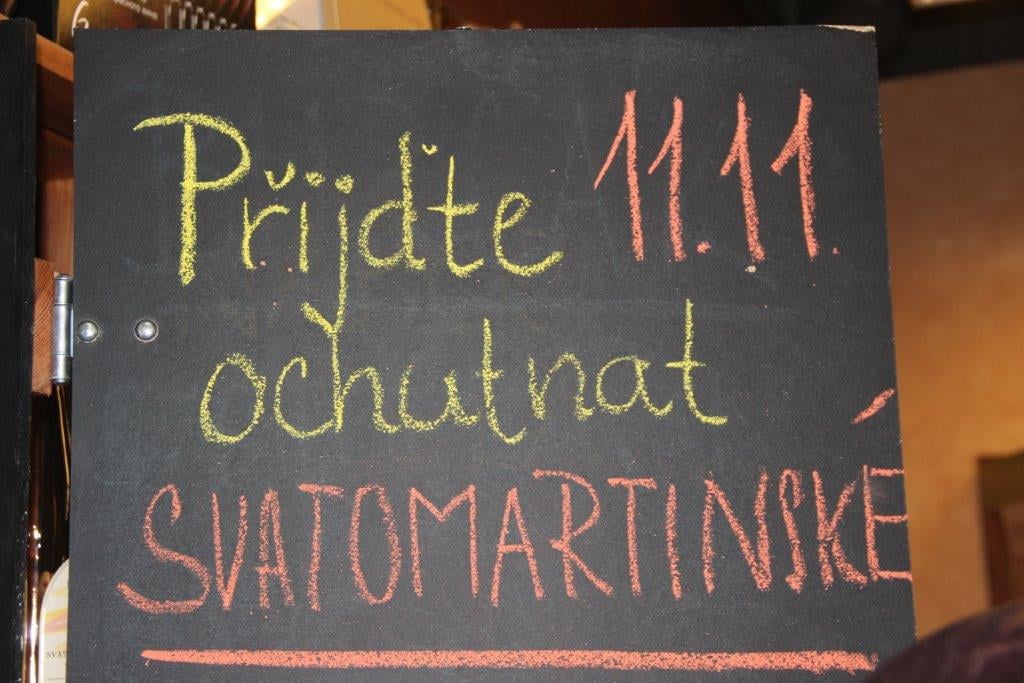 Přijďte 11.11.
ochutnat
SVATOMARTINSKÉ